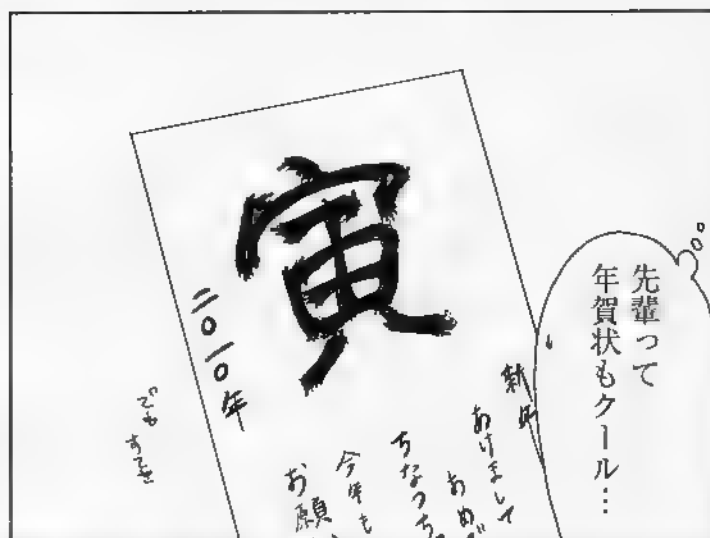 先輩って
年賀状もクール…
寅
二〇一〇年
新年
あけまして
おめで
ちなつち
今年も
お願い
でも
すてき